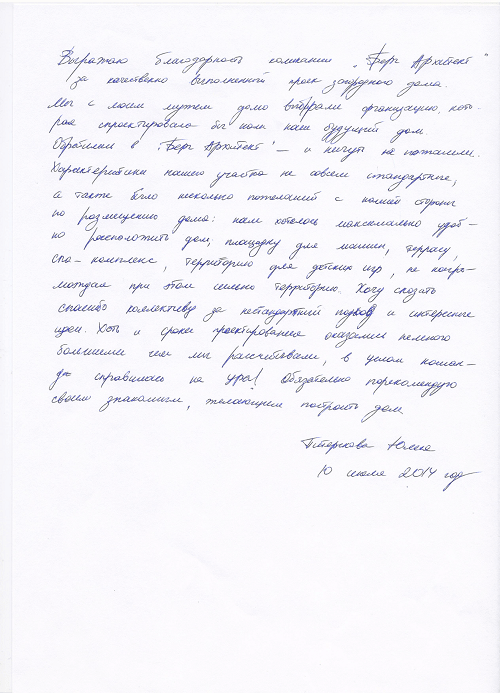 Выражаю благодарность компании „Берг Архитект"
за качественно выполненный проек загородного дома.
Мы с моим мужем долго выбирали организацию, кото-
рая спроектировала бы нам наш будущий дом.
Обратились в „Берг Архитект" – и ничуть не пожалели.
Характеристики нашего участка не совсем стандартные,
а также было несколько пожеланий с нашей стороны
по размещению дома: нам хотелось максимально удоб-
но расположить дом, площадку для машин, террасу,
спа-комплекс, территорию для детских игр, не загро-
мождая при этом самено территорию. Хочу сказать
спасибо коллективу за нестандартный подход и интересные
идеи. Хоть и сроки проектирования оказались немного
большими чем мы рассчитывали, в целом коман-
да справилась на ура! Обязательно порекомендую
своим знакомым, желающим построить дом
Юлия
10 июля 2014 год